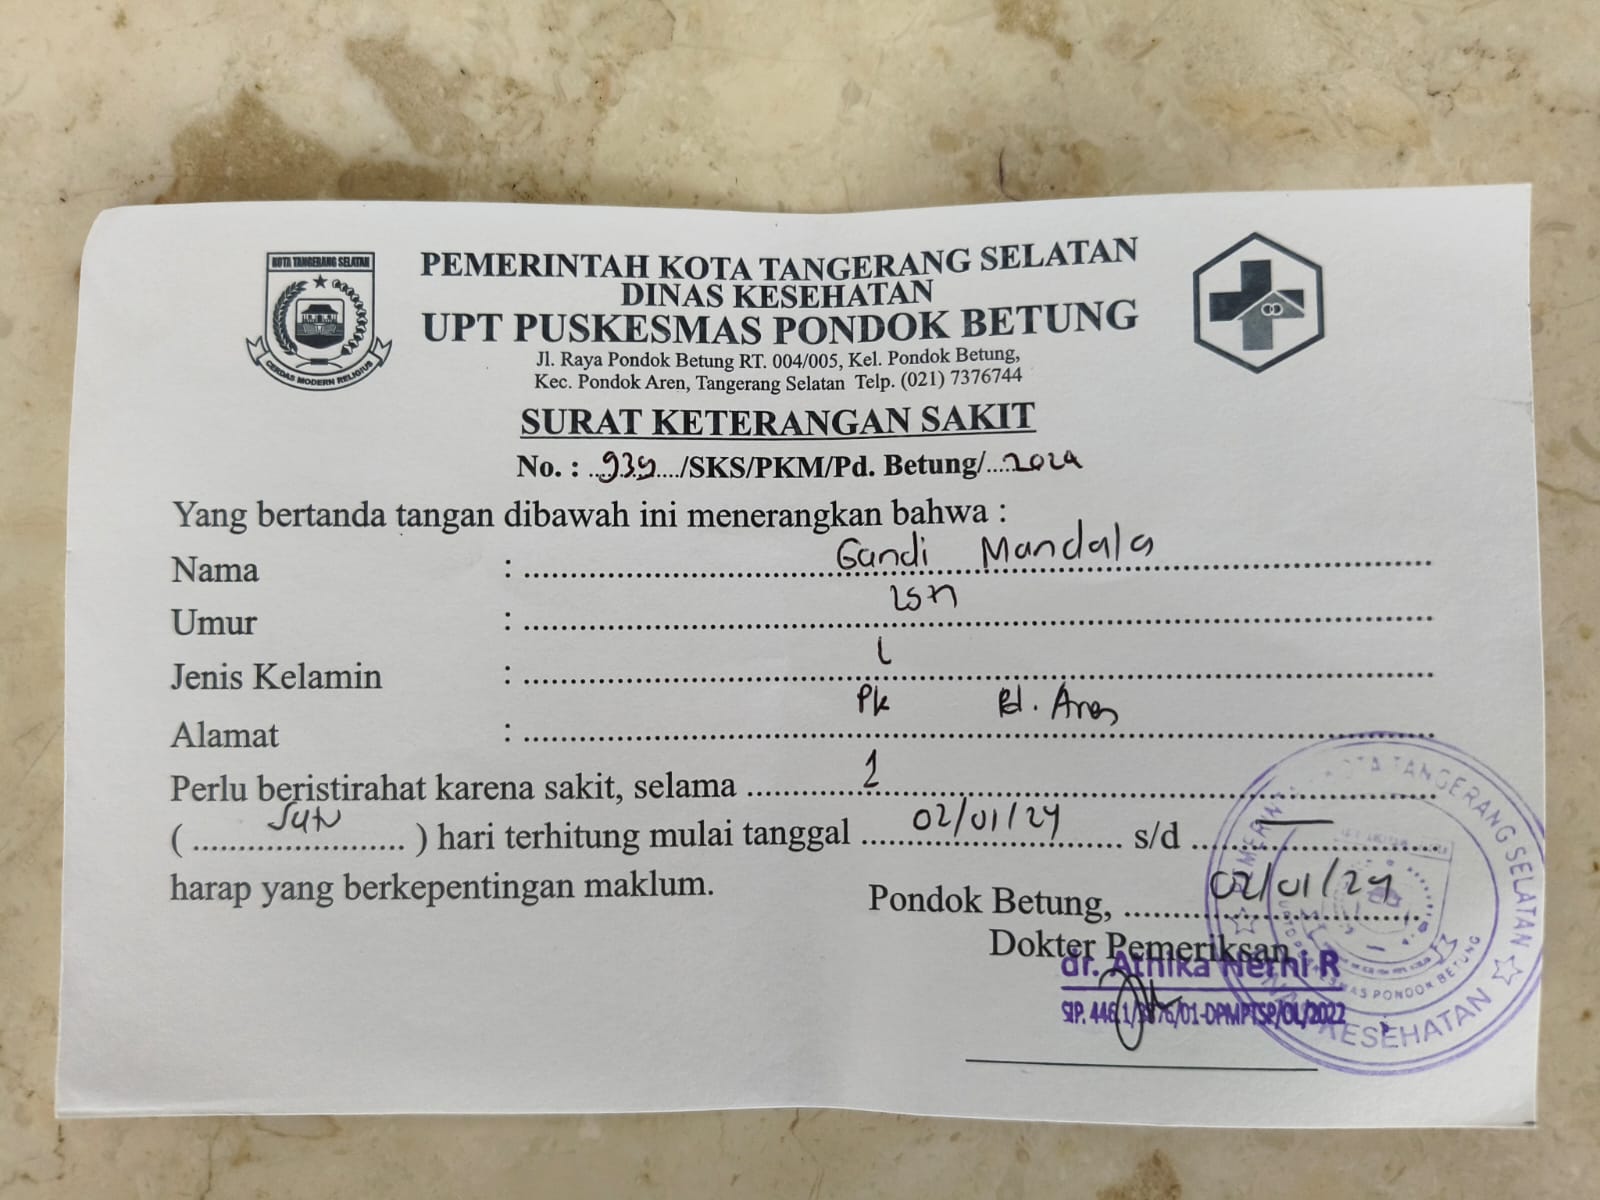 KOTA TANGERANG SELATAN
CERDAS MODERN RELIGIUS
PEMERINTAH KOTA TANGERANG SELATAN
DINAS KESEHATAN
UPT PUSKESMAS PONDOK BETUNG
Jl. Raya Pondok Betung RT. 004/005, Kel. Pondok Betung,
Kec. Pondok Aren, Tangerang Selatan Telp. (021) 7376744
SURAT KETERANGAN SAKIT
No. : ..939..../SKS/PKM/Pd. Betung/....2024
Yang bertanda tangan dibawah ini menerangkan bahwa :
Nama : Gandi Mandala
Umur :
Jenis Kelamin : L
Alamat : Pk Pd. Aren
Perlu beristirahat karena sakit, selama ..... 1
( ..... ) hari terhitung mulai tanggal 02/01/24 s/d —
harap yang berkepentingan maklum.
Pondok Betung, 02/01/24
Dokter Pemeriksan
dr. Athika Nerhi R
KOTA TANGERANG SELATAN
KESEHATAN
PONDOK BETUNG